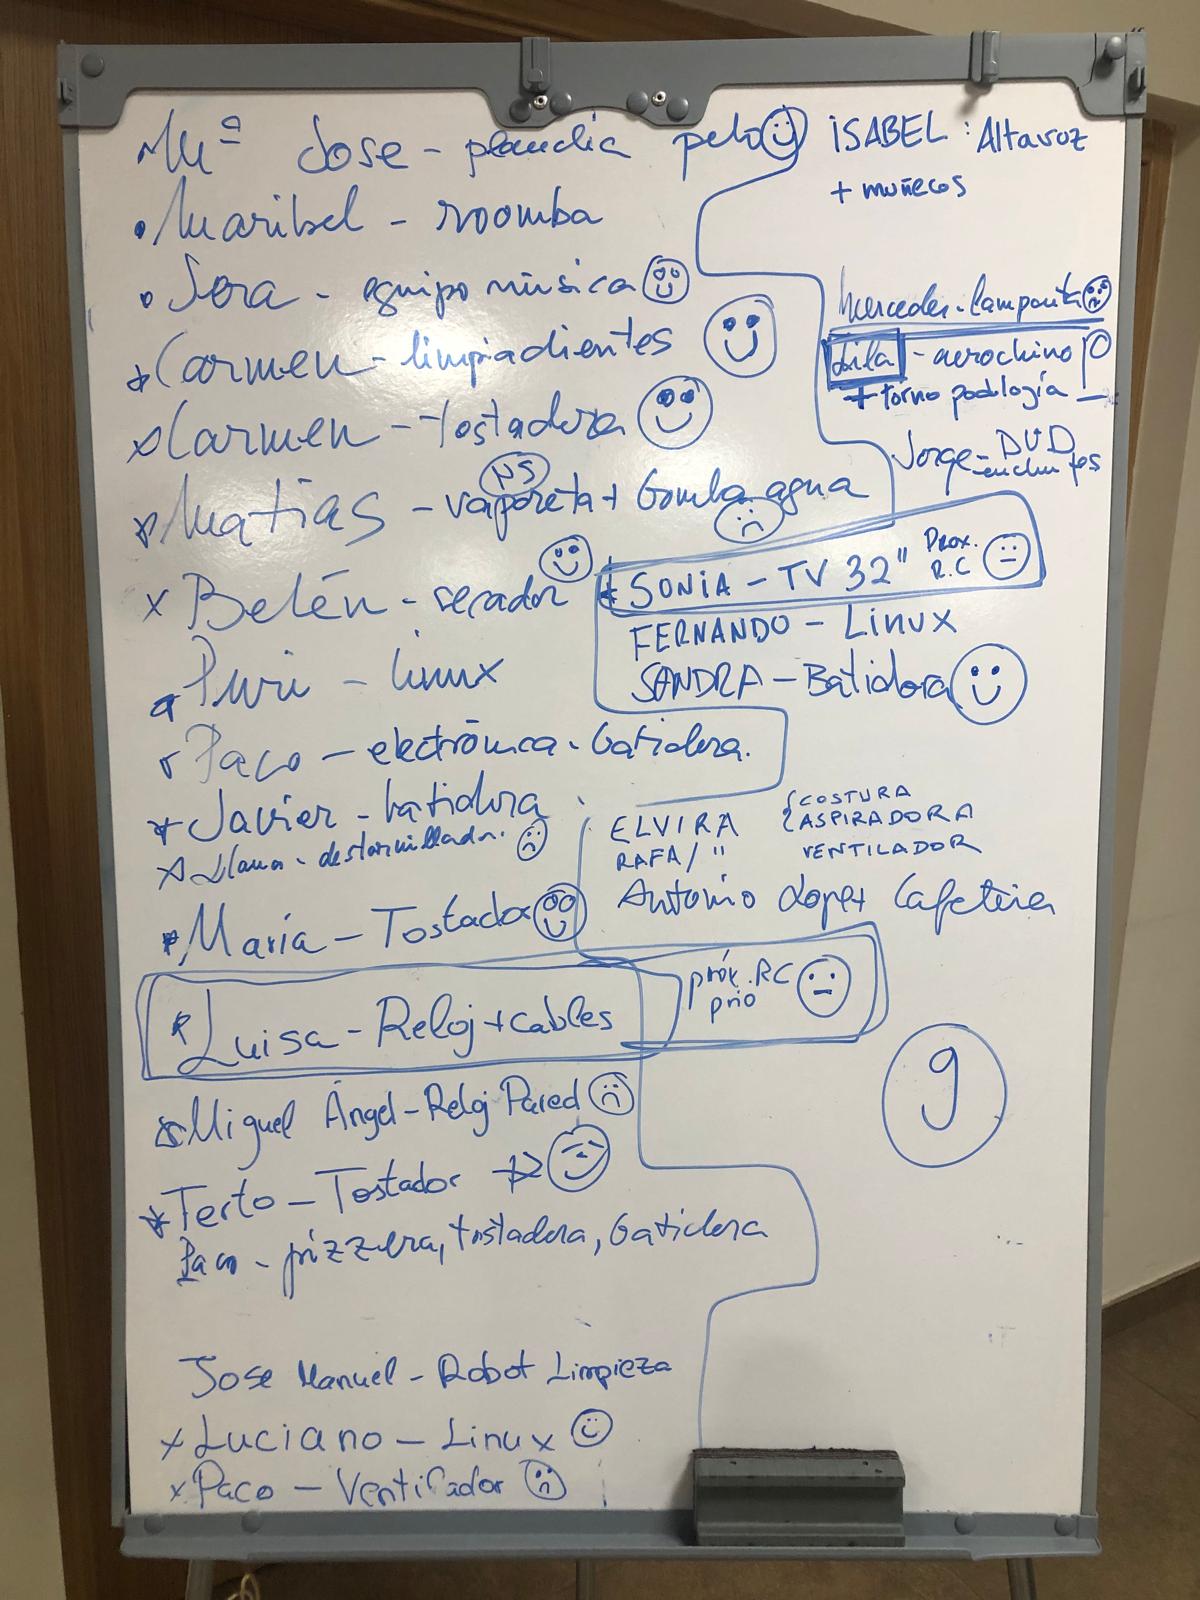 Mª Jose - plancha pelo
• Maribel - roomba
• Sara - equipo música
Carmen - limpiadientes
x Carmen - tostadora
NS
Matias - vaporeta + bomba agua
x Belén - secador
Puri - linux
Paco - electrónica - batidora.
Javier - batidora
- destornillador.
María - Tostador
Luisa - Reloj + cables
próx. RC
prio
Miguel Ángel - Reloj Pared
Terto - Tostador
Paco - pizzera, tostadora, batidora
Jose Manuel - Robot Limpieza
x Luciano - Linux
x Paco - Ventilador
ISABEL : Altavoz
+ muñecos
Mercedes - lamparita
- aerochino
+ torno podología
Jorge - DVD
enchufes
SONIA - TV 32" Prox.
R.C
FERNANDO - Linux
SANDRA - Batidora
ELVIRA { COSTURA
ASPIRADORA
RAFA / " VENTILADOR
Antonio Lopez Cafetera
9